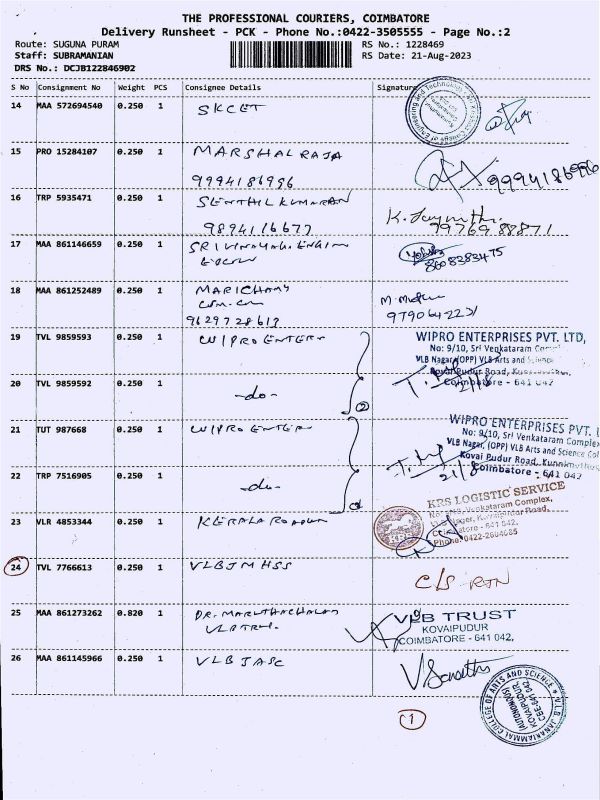 THE PROFESSIONAL COURIERS, COIMBATORE
Delivery Runsheet - PCK - Phone No.:0422-3505555 - Page No.:2
Route: SUGUNA PURAM
RS No.: 1228469
Staff: SUBRAMANIAN
RS Date: 21-Aug-2023
DRS No.: DCJB122846902
S No Consignment No Weight PCS Consignee Details Signature
14 MAA 572694540 0.250 1 SKCET
15 PRO 15284107 0.250 1 MARSHAL RAJA
9994186996 9994186996
16 TRP 5935471 0.250 1 SENTHIL KUMARAN
9894116677 7976988871
17 MAA 861146659 0.250 1 SRI VINAYAGA
8608383475
18 MAA 861252489 0.250 1 MARICHAMY
9629728613 9790642231
19 TVL 9859593 0.250 1 WIPRO ENTER
WIPRO ENTERPRISES PVT. LTD,
No: 9/10, Sri Venkataram
VLB Nagar (OPP) VLB Arts and Science
Kovai Pudur Road,
Coimbatore - 641 042
20 TVL 9859592 0.250 1 -do- 21/8
2
21 TUT 987668 0.250 1 WIPRO ENTER
WIPRO ENTERPRISES PVT.
No: 9/10, Sri Venkataram Complex
VLB Nagar, (OPP) VLB Arts and Science Col
Kovai Pudur Road, Kuniamuthur
Coimbatore - 641 042
22 TRP 7516905 0.250 1 -do- 21/8
KRS LOGISTIC SERVICE
Venkataram Complex,
23 VLR 4853344 0.250 1 KERALA
Phone: 0422-2604685
24 TVL 7766613 0.250 1 VLBJMHSS C/S RTN
25 MAA 861273262 0.820 1 DR. MARUTHACHALAM
VLB TRUST
KOVAIPUDUR
COIMBATORE - 641 042.
26 MAA 861145966 0.250 1 VLBJASC
V.B. JANAKIAMMAL COLLEGE OF ARTS AND SCIENCE
(AUTONOMOUS)
KOVAIPUDUR
CBE-641 042
1